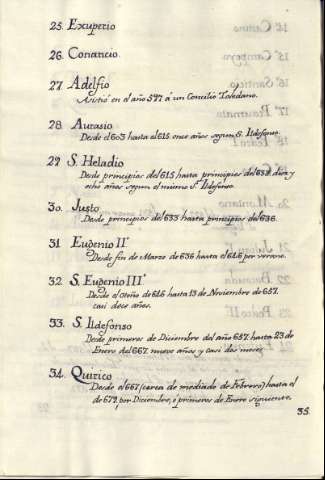 25. Exuperio
26. Conancio.
27 Adelfio
Asistió en el año 597. á un Concilio Toledano.
28. Aurasio
Desde el 603 hasta el 615. once años segun S. Ildefonso.
29. S. Heladio
Desde principios del 615 hasta principios del 633. diez y
ocho años segun el mismo S. Ildefonso.
30. Justo
Desde principios del 633 hasta principios del 636.
31 Eugenio IIº
Desde fin de Marzo de 636 hasta el 646 por verano.
32. S. Eugenio IIIº
Desde el Otoño de 646 hasta 13 de Noviembre de 657.
casi doce años.
33. S. Ildefonso
Desde primeros de Diciembre del año 657. hasta 23 de
Enero del 667. nueve años y casi dos meses.
34. Quirico
Desde el 667 (cerca de mediado de Febrero) hasta el
de 679. por Diciembre, ó primeros de Enero siguiente.
35.